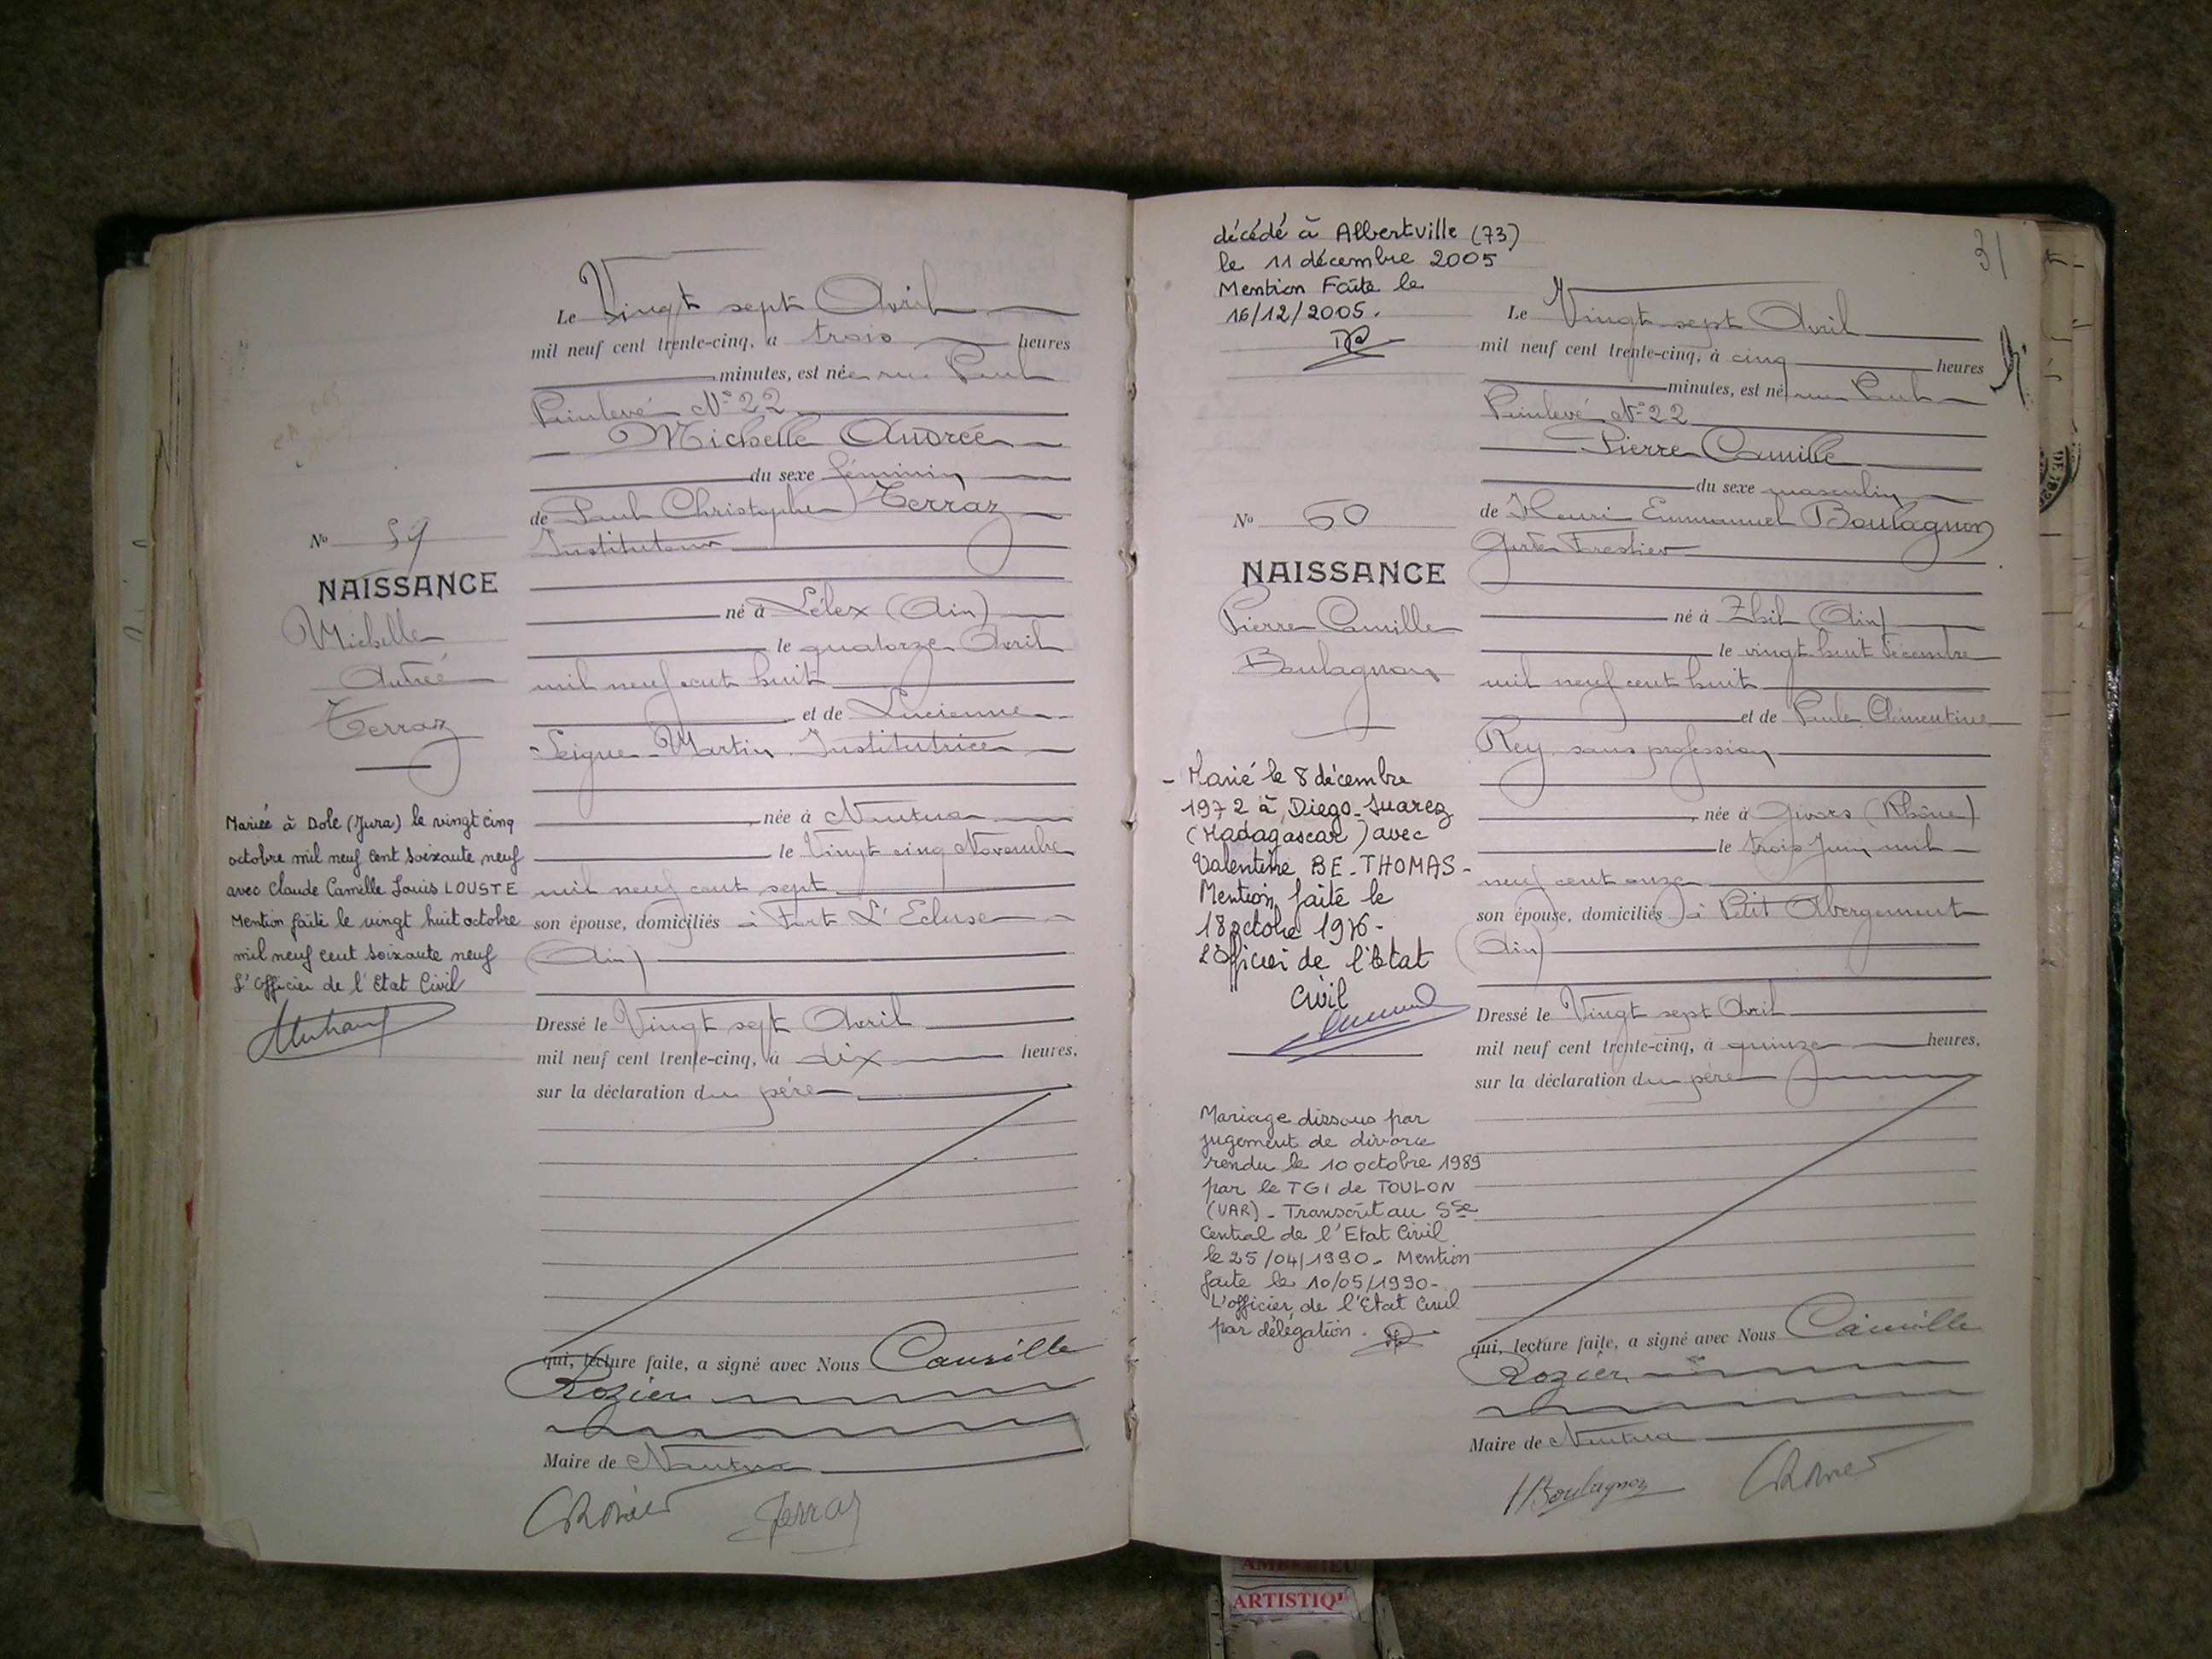 Le Vingt sept Avril
mil neuf cent trente-cinq, à trois heures
minutes, est née rue Paul
Painlevé N° 22
Michelle Andrée
du sexe féminin
de Paul Christophe Terraz
Instituteur
né à Lélex (Ain)
le quatorze Avril
mil neuf cent huit
et de Lucienne
Seigne-Martin Institutrice
née à Nantua
le Vingt cinq Novembre
mil neuf cent sept
son épouse, domiciliés à Fort L'Ecluse
(Ain)
Dressé le Vingt sept Avril
mil neuf cent trente-cinq, à dix heures,
sur la déclaration du père
qui, lecture faite, a signé avec Nous Camille
Rozier
Maire de Nantua
CRozier Terraz
N° 59
NAISSANCE
Michelle
Andrée
Terraz
Mariée à Dole (Jura) le vingt cinq
octobre mil neuf cent soixante neuf
avec Claude Camille Louis LOUSTE
Mention faite le vingt huit octobre
mil neuf cent soixante neuf
L'Officier de l'Etat Civil
décédé à Albertville (73)
le 11 décembre 2005
Mention Faite le
16/12/2005.
31
Le Vingt sept Avril
mil neuf cent trente-cinq, à cinq heures
minutes, est né rue Paul
Painlevé N° 22
Pierre Camille
du sexe masculin
de Henri Emmanuel Boulagnon
Garde Forestier
né à (Ain)
le vingt huit Décembre
mil neuf cent huit
et de Paule Clémentine
Rey sans profession
née à Givors (Rhône)
le trois Juin mil
neuf cent onze
son épouse, domiciliés à Petit Abergement
(Ain)
Dressé le Vingt sept Avril
mil neuf cent trente-cinq, à quinze heures,
sur la déclaration du père
qui, lecture faite, a signé avec Nous Camille
Rozier
Maire de Nantua
HBoulagnon CRozier
N° 60
NAISSANCE
Pierre Camille
Boulagnon
- Marié le 8 décembre
1972 à Diego-Suarez
(Madagascar) avec
Valentine BE-THOMAS-
Mention faite le
18 octobre 1976-
L'Officier de l'Etat
Civil
Mariage dissous par
jugement de divorce
rendu le 10 octobre 1989
par le TGI de TOULON
(VAR) - Transcrit au Sce
Central de l'Etat Civil
le 25/04/1990- Mention
faite le 10/05/1990-
L'officier de l'Etat Civil
par délégation.
ARTISTIQ